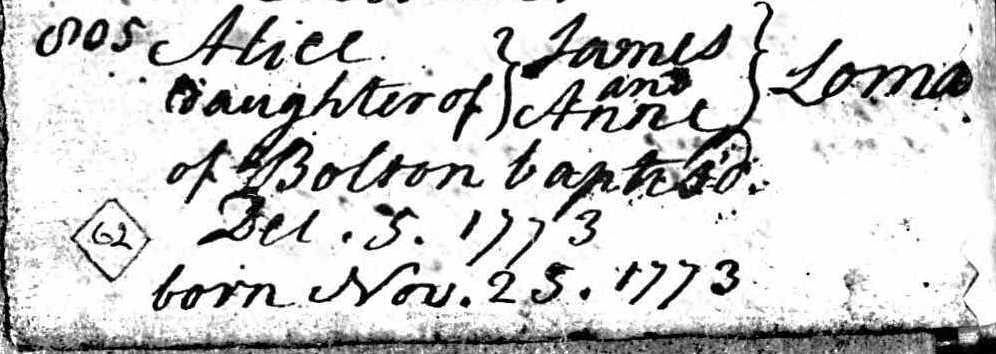 805 Alice daughter of } James and Anne } Loma
of Bolton baptis'd.
Dec. 5. 1773
62
born Nov. 25. 1773